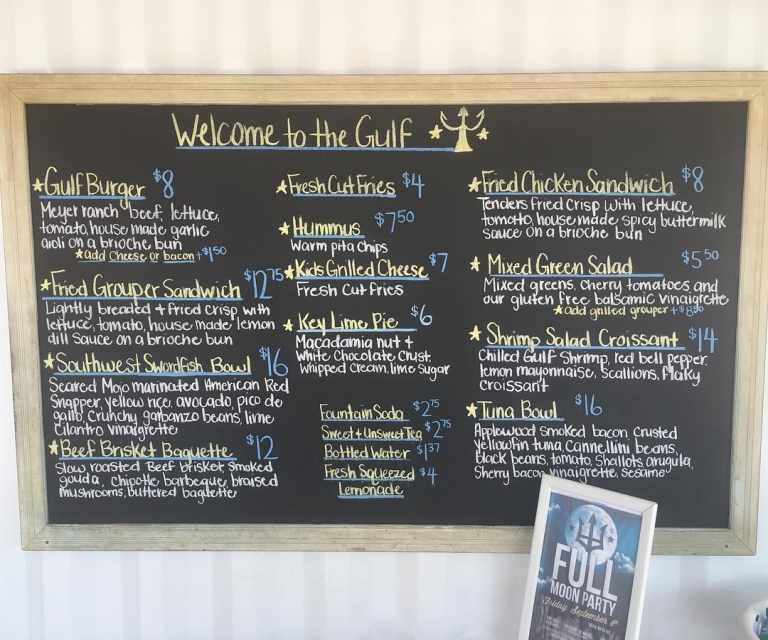 Welcome to the Gulf
Gulf Burger $8
Meyer ranch beef, lettuce,
tomato, house made garlic
aioli on a brioche bun
add Cheese or bacon +$1.50
Fried Grouper Sandwich $12.75
Lightly breaded + fried crisp with
lettuce, tomato, house made lemon
dill sauce on a brioche bun
Southwest Swordfish Bowl $16
Seared Mojo marinated American Red
Snapper, yellow rice, avocado, pico de
gallo, crunchy garbanzo beans, lime
cilantro vinaigrette
Beef Brisket Baguette $12
Slow roasted Beef brisket, smoked
gouda, chipotle barbeque, braised
mushrooms, buttered baguette
Fresh Cut Fries $4
Hummus $7.50
Warm pita chips
Kids Grilled Cheese $7
Fresh Cut fries
Key Lime Pie $6
Macadamia nut +
White Chocolate Crust,
Whipped cream, lime sugar
Fountain Soda $2.75
Sweet + Unsweet Tea $2.75
Bottled Water $1.37
Fresh Squeezed $4
Lemonade
Fried Chicken Sandwich $8
Tenders fried crisp with lettuce,
tomato, house made spicy buttermilk
sauce on a brioche bun
Mixed Green Salad $5.50
Mixed greens, cherry tomatoes and
our gluten free balsamic vinaigrette
add grilled grouper +
Shrimp Salad Croissant $14
Chilled Gulf Shrimp, red bell pepper,
lemon mayonnaise, scallions, flaky
croissant
Tuna Bowl $16
Applewood smoked bacon crusted
yellowfin tuna, cannellini beans,
black beans, tomato, shallots arugula,
Sherry bacon vinaigrette, sesame
FULL
MOON PARTY
Friday September 8th